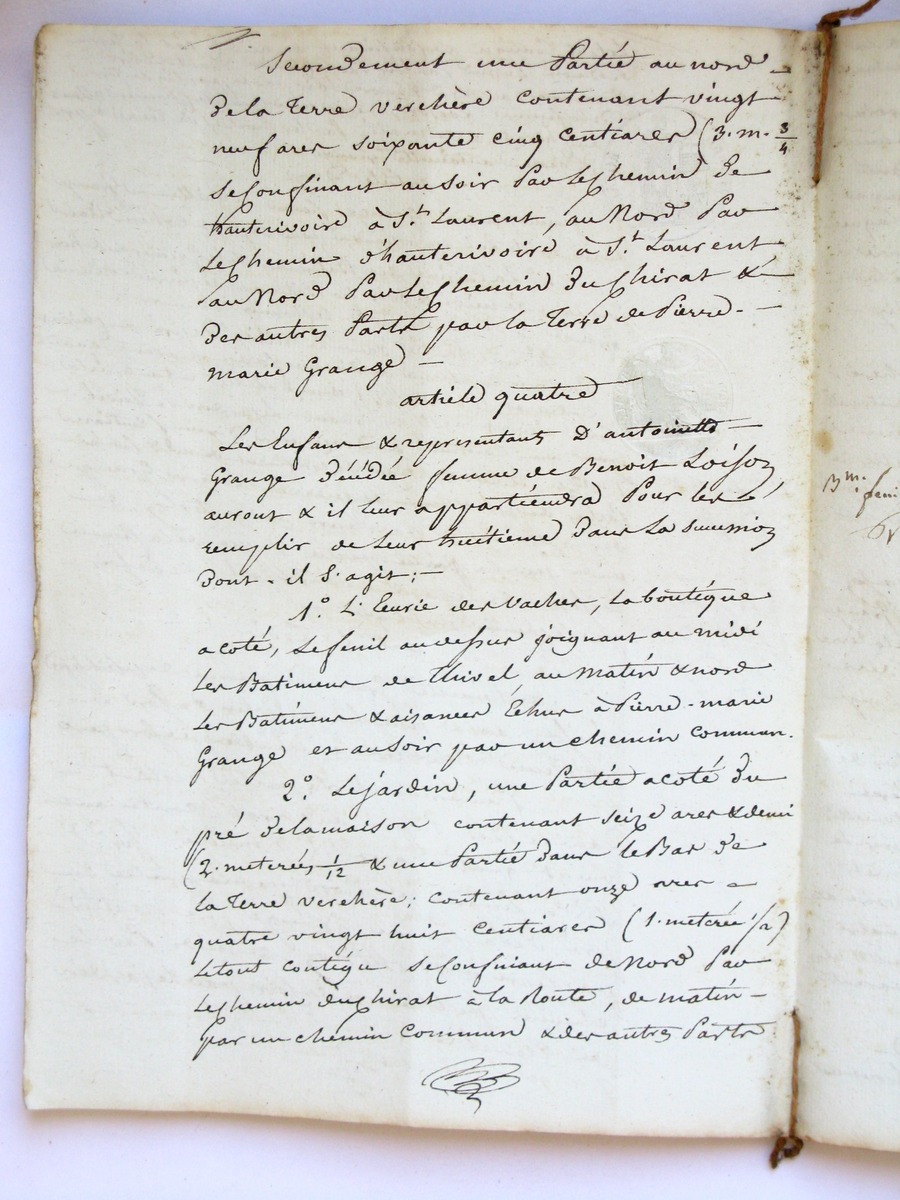 Secondement une Partie au nord
de la Terre verchère contenant vingt
neuf ares soixante cinq centiares (3. m. 3/4
se Confinant au soir Par Le Chemin de
hauterivoire à St. Laurent, au Nord Par
Le Chemin d'hauterivoire à St. Laurent
au Nord Par Le Chemin du Chirat &
des autres Parts par la Terre de Pierre-
marie Grange —
article quatre
Les Enfans & representants D'antoinette
Grange décédée femme de Benoit Loison
auront & il leur appartiendra Pour les
remplir de leur huitieme dans La succession
dont - il s'agit; —
1.° L'Ecurie des Vaches, la boutique
a coté, le fenil au dessus joignant au midi
Les Batimens de Thivel, au matin & nord
Les Batimens & aisances Echus à Pierre-marie
Grange et au soir par un chemin commun.
2.° Le jardin, une Partie a coté du
pré de la maison contenant seize ares & demi
(2. meterées 1/12 & une Partie dans le Bas de
la Terre verchère; contenant onze ares
quatre vingt huit centiares (1. meterée 1/2)
Le tout contigu se Confinant de Nord Par
Le Chemin du Chirat à la Route, de matin
par un chemin commun & des autres Parts
3m.